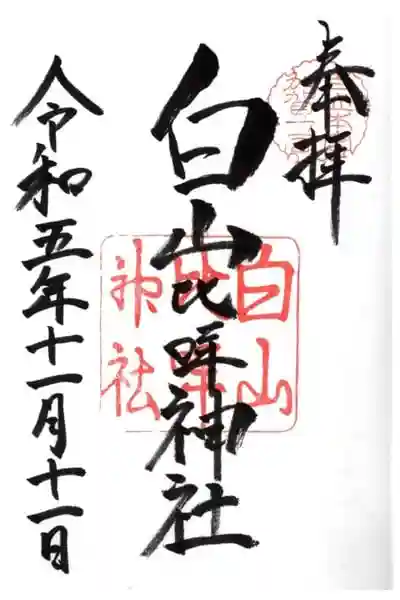 奉拝
白山比咩神社
令和五年十一月十一日
白山
比咩
神社